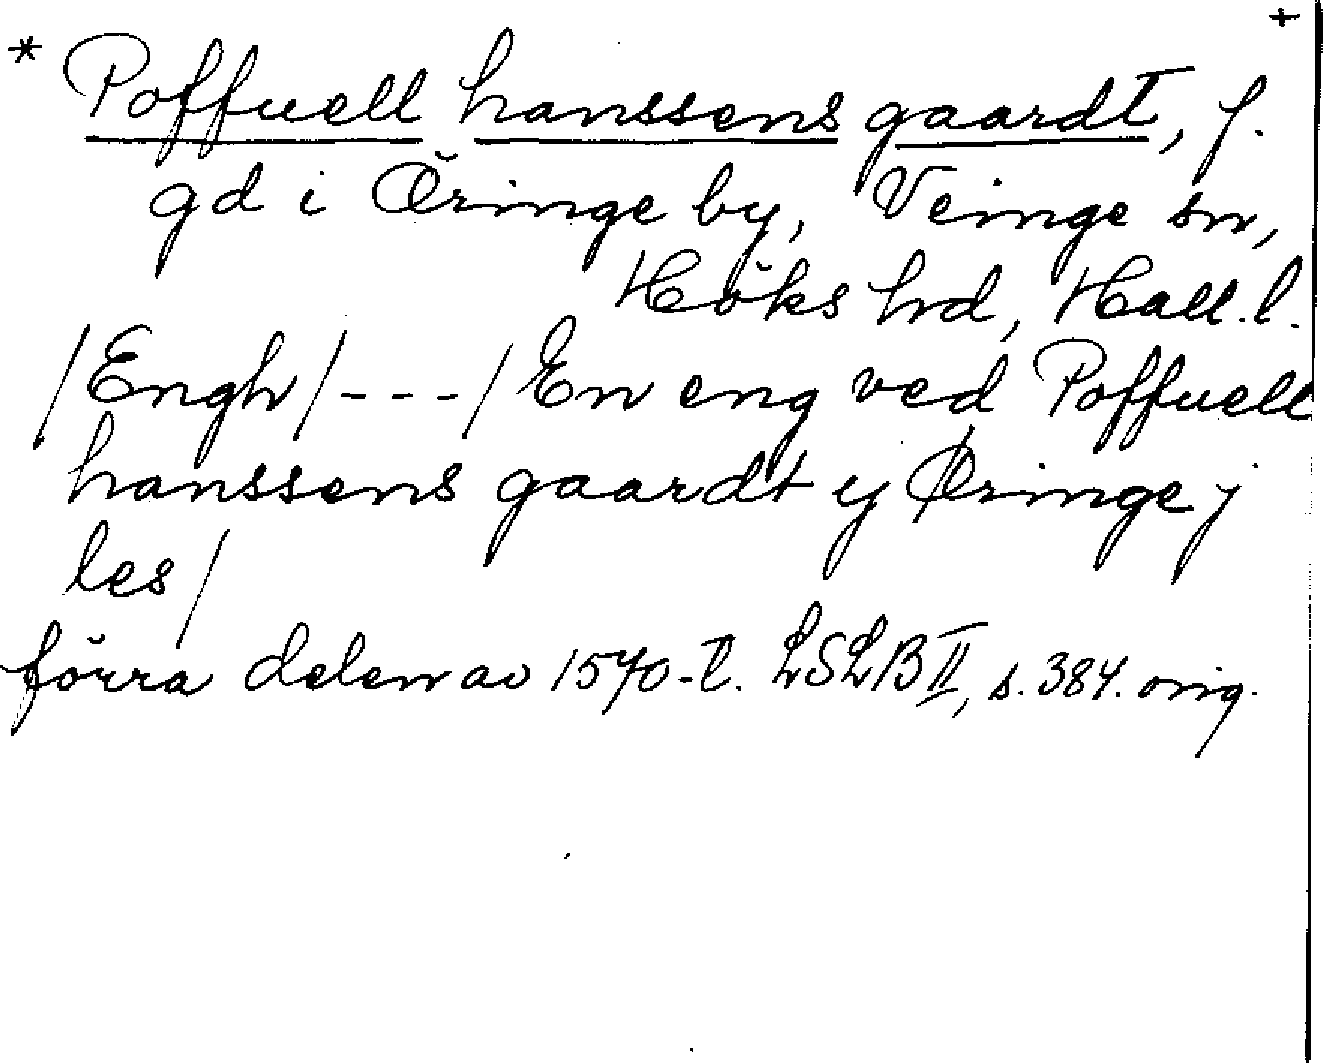 * Poffuell hanssens gaardt, f. +
gd i Öringe by, Veinge sn,
Höks hrd, Hall.l.
/Engh/---/En eng ved Poffuell
hanssens gaardt y Øringe j
les/
förra delen av 1570-t. LSLB II, s. 384. orig.